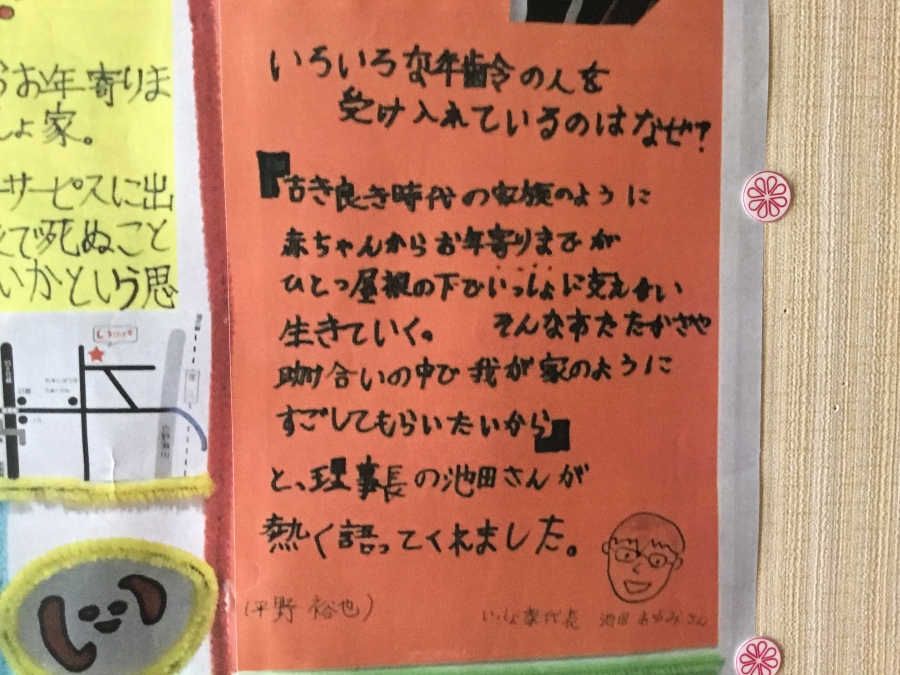 お年寄りま
しょ家。
サービスに出
で死ぬこと
いかという思
いろいろな年齢の人を
受け入れているのはなぜ?
『古き良き時代の家族のように
赤ちゃんからお年寄りまでが
ひとつ屋根の下でいっしょに支えあい
生きていく。 そんなあたたかさや
助け合いの中で我が家のように
すごしてもらいたいから』
と、理事長の池田さんが
熱く語ってくれました。
(平野 裕也)
いっしょ家代表 池田 あゆみ さん